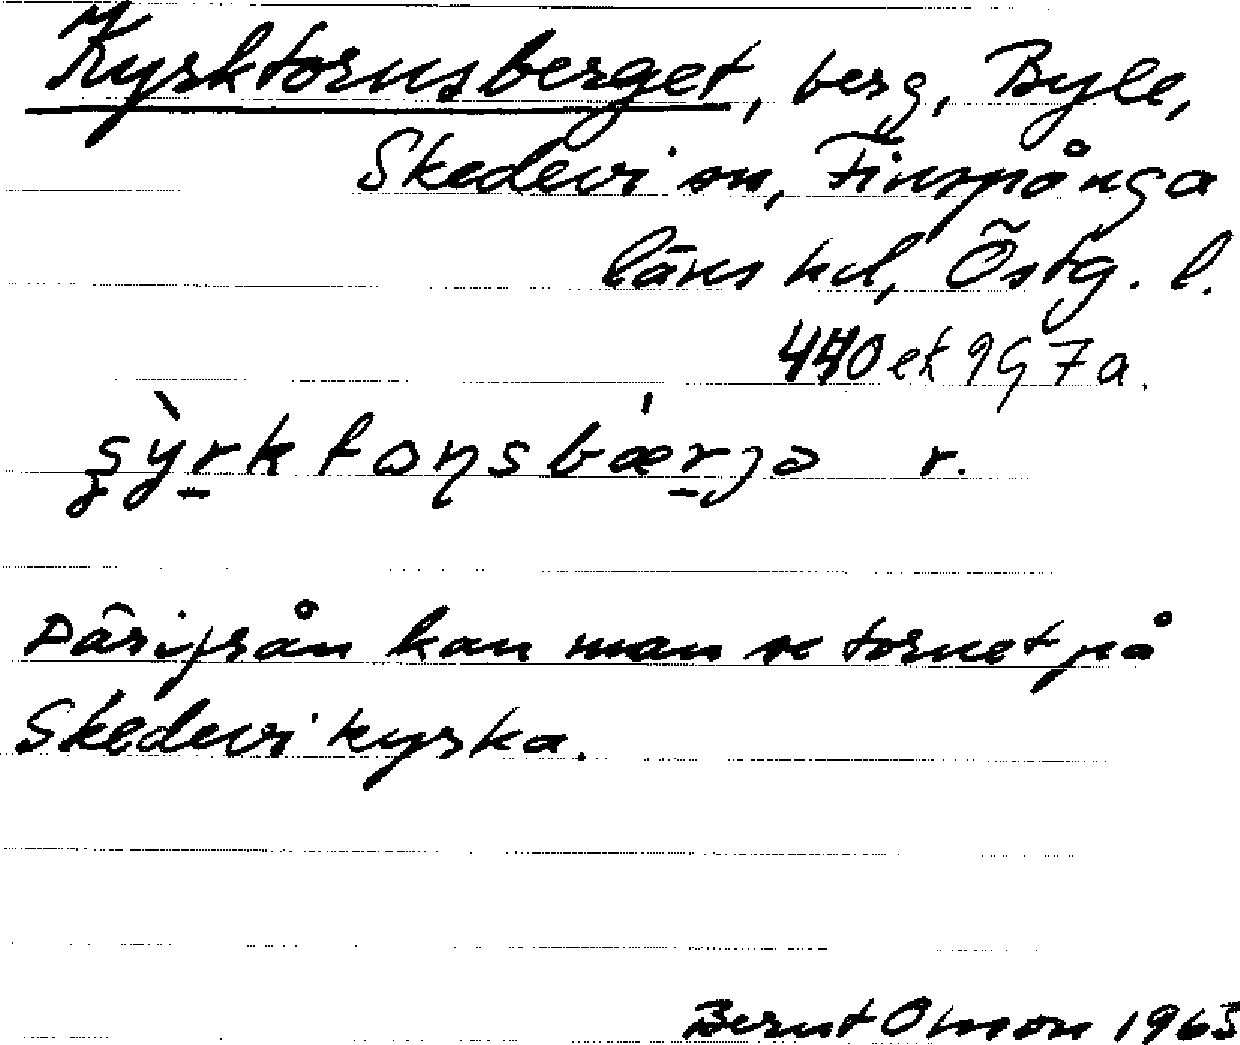 Kyrktornsberget, berg, Byle,
Skedevi sn, Finspånga
läns hd, Östg. l.
440 ek 9G7a.
r.
Därifrån kan man se tornet på
Skedevi kyrka.
Bernt Omson 1963